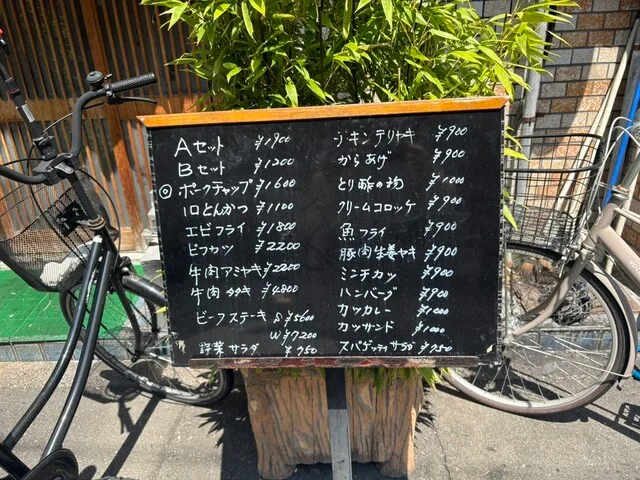 Aセット ¥1900
Bセット ¥1200
◎ポークチャップ ¥1600
一口とんかつ ¥1100
エビフライ ¥1800
ビフカツ ¥2200
牛肉アミヤキ ¥2200
牛肉タタキ ¥4800
ビーフステーキ S ¥5600
W ¥7200
野菜サラダ ¥750
チキンテリヤキ ¥900
からあげ ¥900
とり酢の物 ¥1000
クリームコロッケ ¥900
魚フライ ¥900
豚肉生姜ヤキ ¥900
ミンチカツ ¥900
ハンバーグ ¥900
カツカレー ¥1000
カツサンド ¥1000
スパゲッティサラダ ¥750